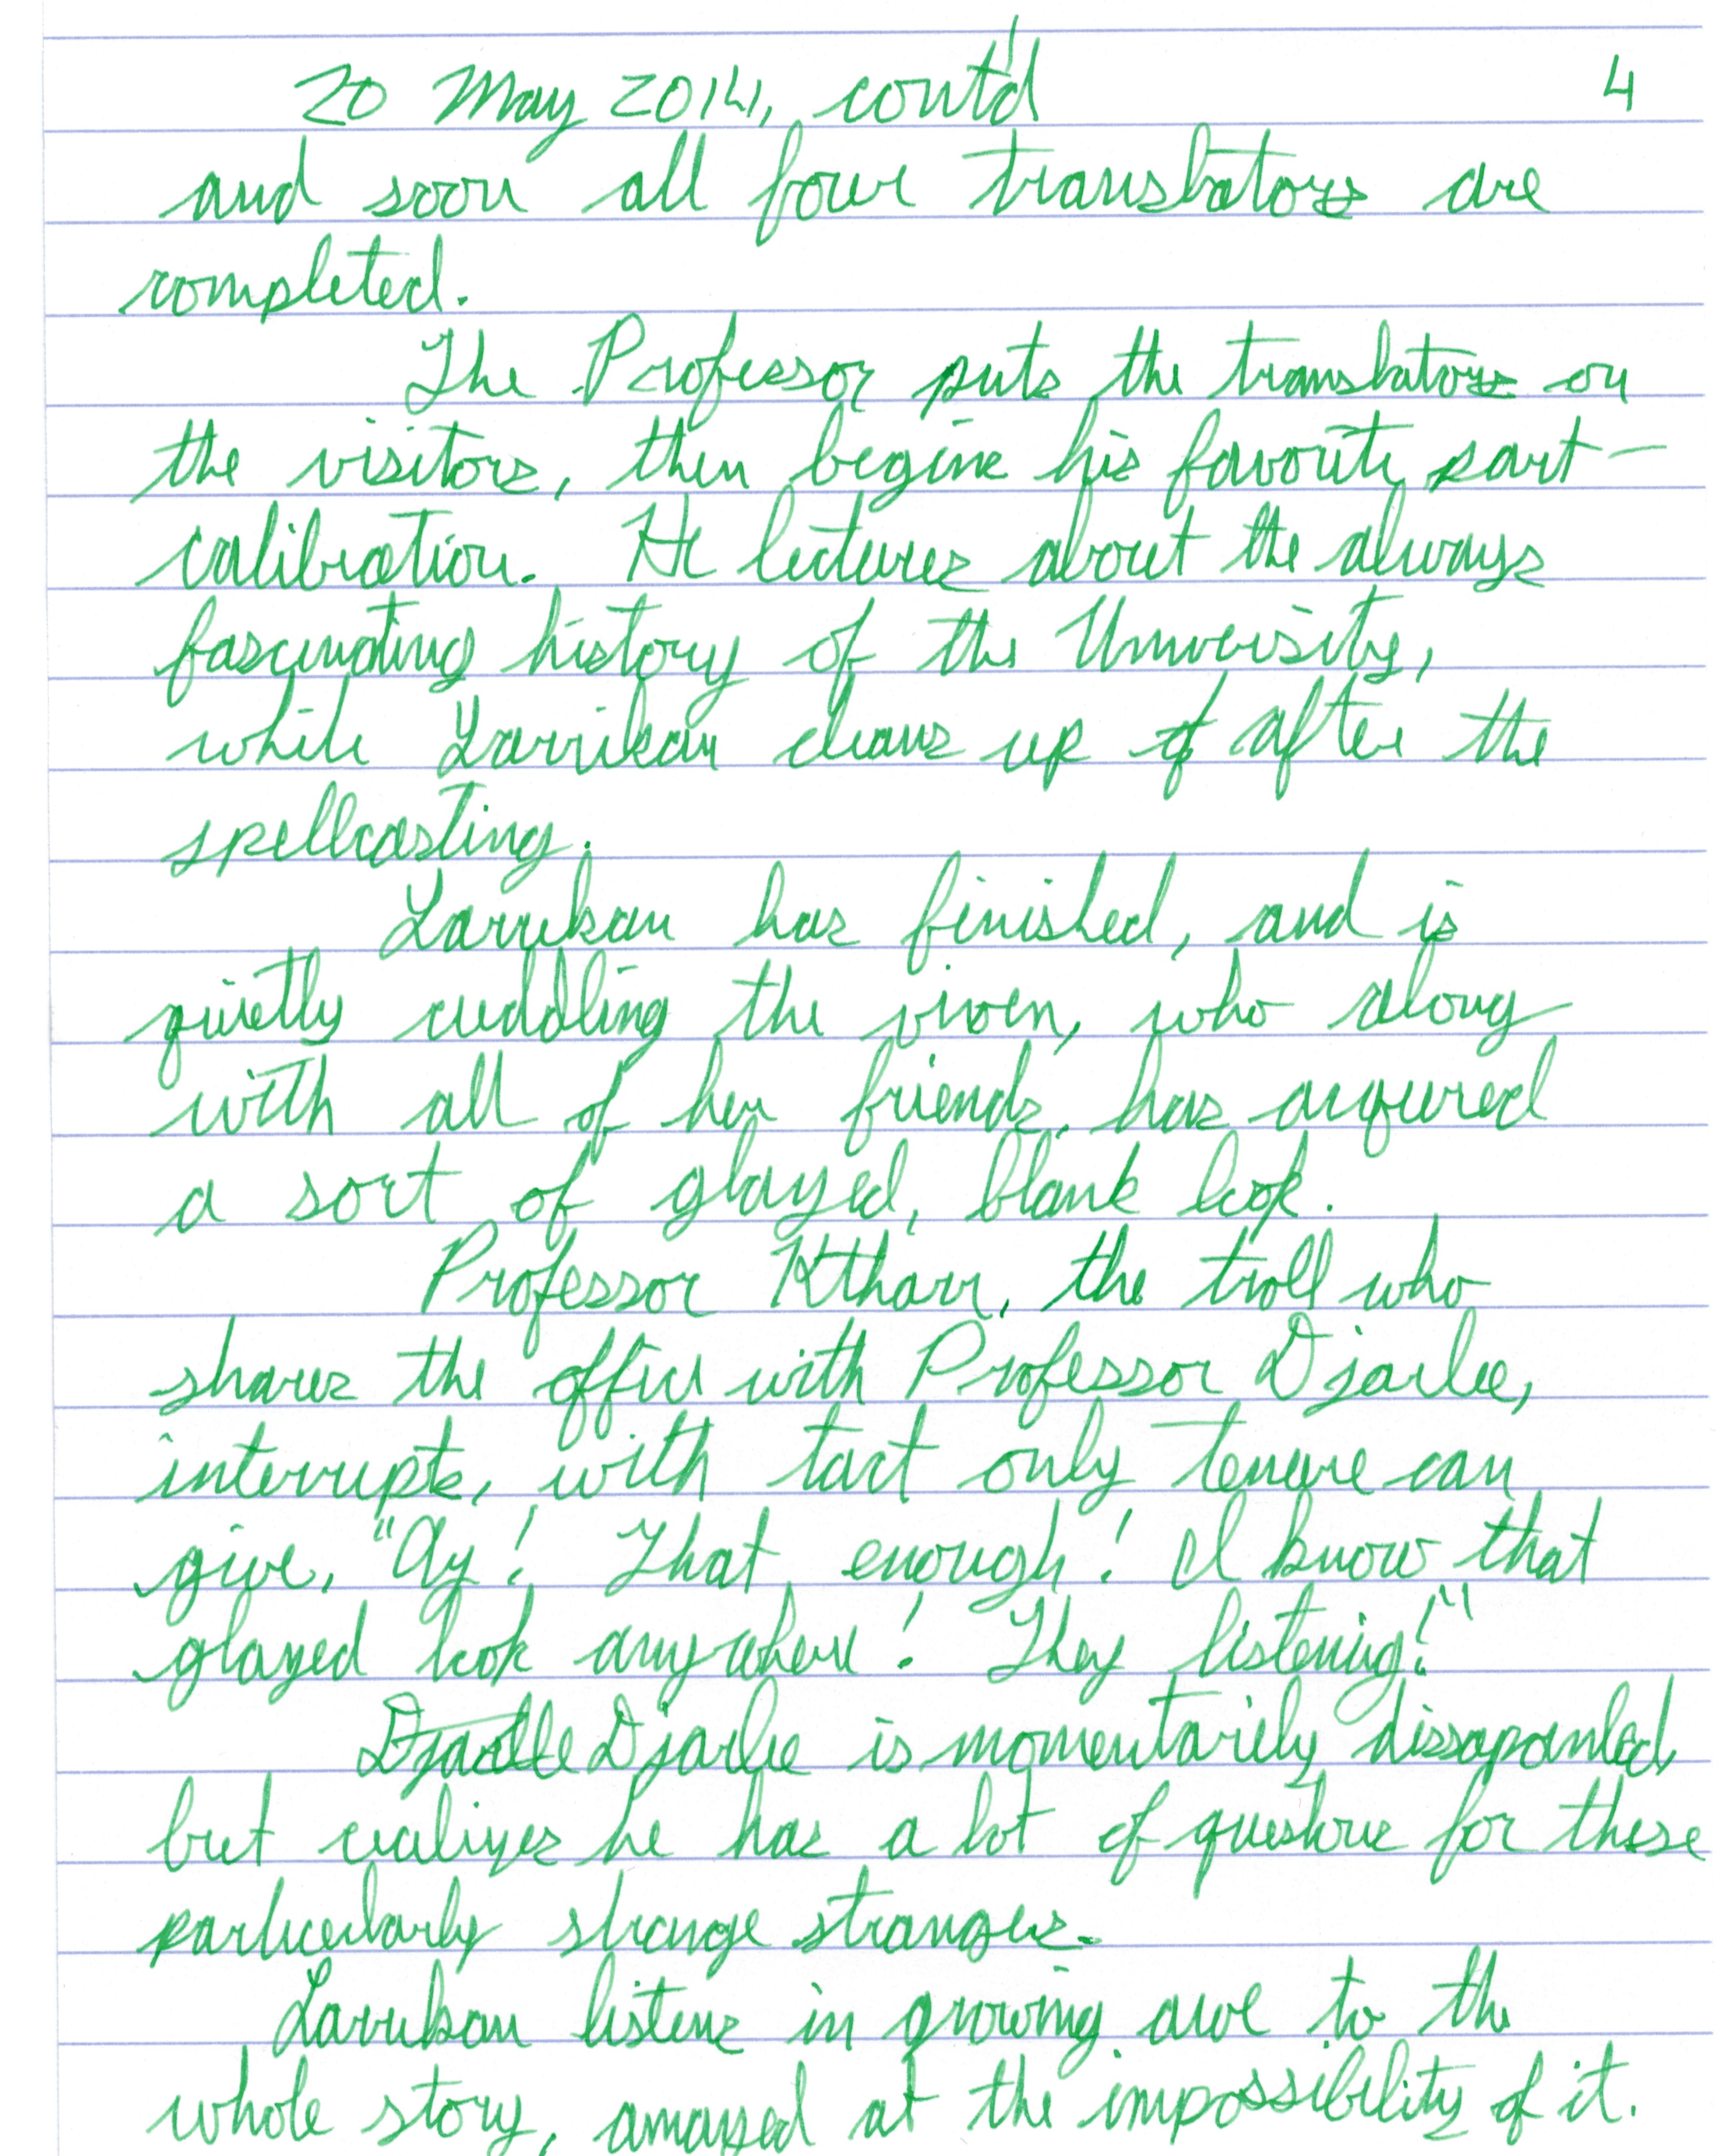 20 May 2014, cont'd 4
and soon all four translators are
completed.
The Professor puts the translators on
the visitors, then begins his favorite part —
calibration. He lectures about the always
fascinating history of the University,
while Larrikan cleans up after the
spellcasting.
Larrikan has finished, and is
quietly cuddling the vixen, who along
with all of her friends, has acquired
a sort of glazed, blank look.
Professor Ktharr, the troll who
shares the office with Professor Djarlee,
interrupts, with tact only tenure can
give, "Ay! That enough! I know that
glazed look anywhere! They listening!"
Djarlee is momentarily dissapointed,
but realizes he has a lot of questions for these
particularly strange strangers.
Larrikan listens in growing awe to the
whole story, amazed at the impossibility of it.